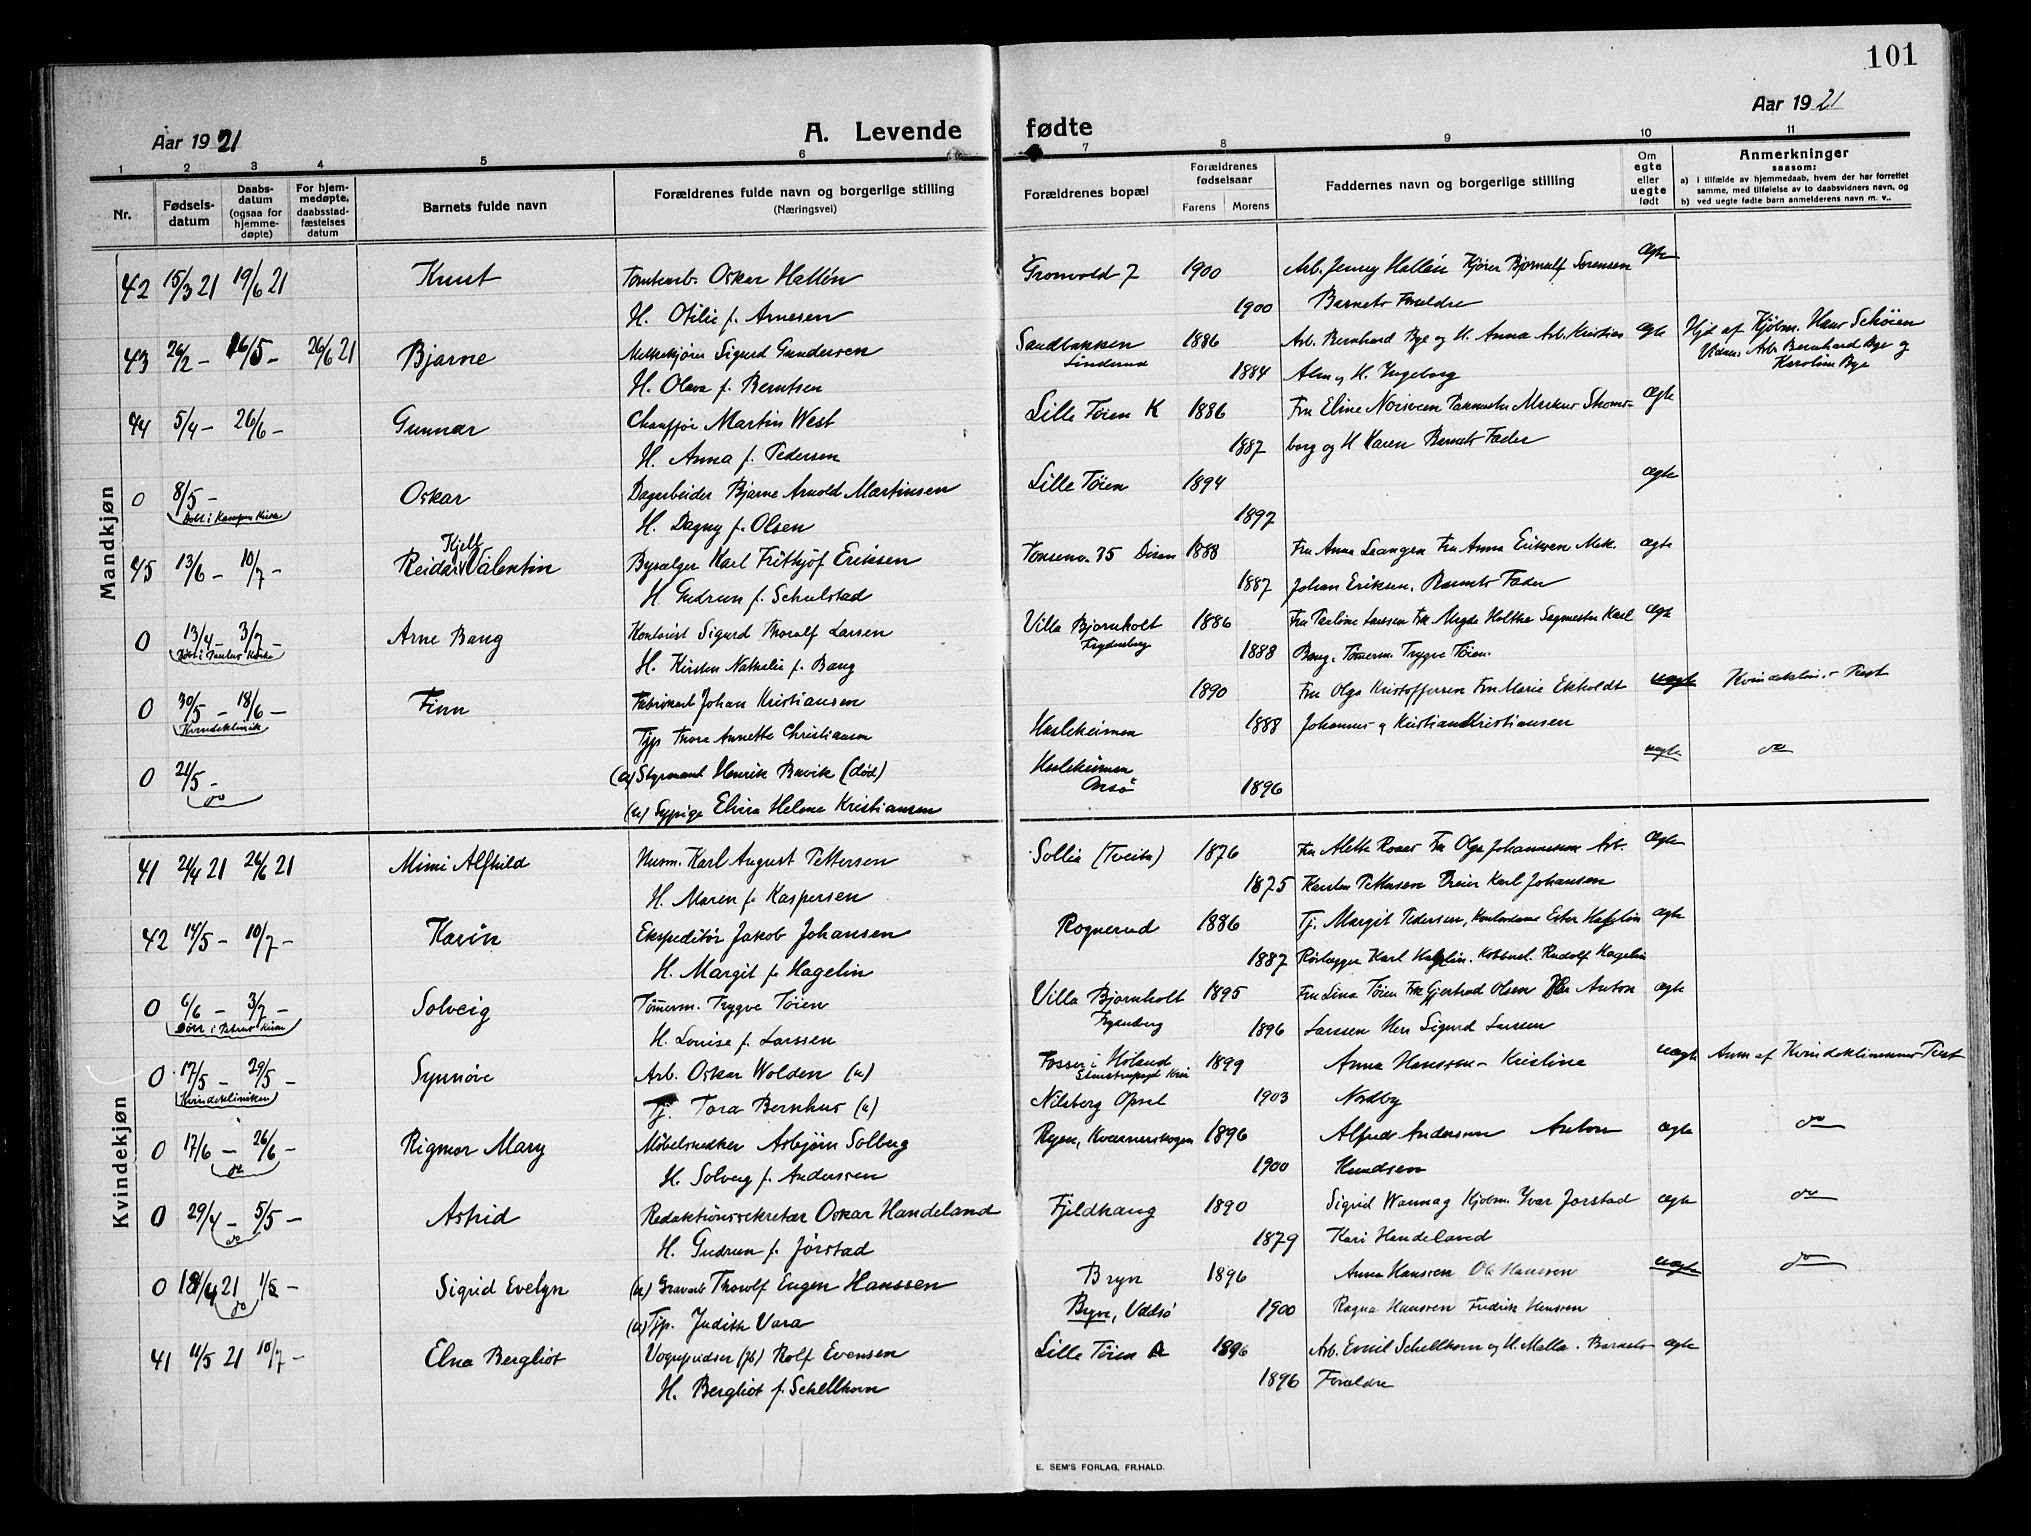 101
Aar 1921
Aar 1921
A. Levende fødte
1 2 3 4 5 6 7 8 9 10 11
Nr.
Fødselsdatum
Daabsdatum (ogsaa for hjemmedøpte)
For hjemmedøpte, daabsstadfæstelses datum
Barnets fulde navn
Forældrenes fulde navn og borgerlige stilling
(Næringsvei)
Forældrenes bopæl
Forældrenes fødselsaar
Farens Morens
Faddernes navn og borgerlige stilling
Om egte eller uegte født
Anmerkninger
saasom:
a) i tilfælde av hjemmedaab, hvem der har forrettet samme, med tilføielse av to daabsvidners navn, og
b) ved uegte fødte barn anmelderens navn m. v..
Mandkjøn
42 15/3 21 19/6 21 Knut Tomtearb. Oskar Hallén Gronvold 7 1900 Arb. Jenny Hallén Kjører Bjornulf Sorensen ægte
H. Otilie f. Arnesen 1900 Barnets Forældre
43 26/2 - 16/5 - 26/6 21 Bjarne Melkekjører Sigurd Gundersen Sandbakken 1886 Arb. Bernhard Bye og H. Anna Arb. Kristian ægte Hjd af Kjøbm. Hans Schøien
Linderud Vidner Arb. Bernhard Bye og
H. Olava f. Berntsen 1884 Alm og H. Ingeborg Karoline Bye
44 5/4 - 26/6 - Gunnar Chauffør Martin West Lille Tøien K 1886 Fru Eline Noisveen Markus Skoms- ægte
H. Anna f. Pedersen 1887 borg og H Karen Barnets Fader
0 8/5 - Oskar Dagarbeider Bjarne Arnold Martinsen Lille Tøien 1894 ægte
Døbt i Kampen Kirke
H. Dagny f. Olsen 1897
45 13/6 - 10/7 - Reidar Kjell Valentin Byselger Karl Fritkjof Eriksen Tonsenv. 35 Disen 1888 Fru Anna Langen Fru Anna Eriksen Mek. ægte
H. Gudrun f. Schulstad 1887 Johan Eriksen, Barnets Fader
0 13/4 - 3/7 - Arne Bang Kontorist Sigurd Thoralf Larsen Villa Bjornholt 1886 Fru Larsen Frk Magda Holtke Sagmester Karl ægte
Døbt i Paulus Kirke Frydenberg
H. Kirsten Nathalie f. Bang 1888 Bang, Tømerm. Trygve Tøien.
0 30/5 - 18/6 - Finn Fabrikarb Johan Kristiansen 1890 Fru Olga Kristoffersen Fru Marie Ekholdt uægte
Kvindeklinik
Tjp Thora Annette Christiansen Hasleheimen 1888 Johannes og Kristian Kristiansen
0 21/5 - (a) Styrmand Henrik Buvik (død) Hasleheimen uægte do
do Onsø
(u) Sypige Elvira Helene Kristiansen 1896
Kvindekjøn
41 24/4 21 26/6 21 Mimi Alfhild Murm. Karl August Pettersen Sollia (Tveita) 1876 Fru Alette Roser Fru Olga Johannessen Arb. ægte
H. Maren f. Kaspersen 1875 Karsten Pettersen Dreier Karl Johansen
42 14/5 - 10/7 - Karin Ekspeditør Jakob Johansen Rognerud 1886 Tj. Margit Pedersen, Kontordame Ester Hagelin ægte
H. Margit f Hagelin 1887 Rørlegger Karl Hagelin. Kobbersl. Rudolf Hagelin
0 6/6 - 3/7 - Solveig Tømerm. Trygve Tøien Villa Bjornholt 1895 Fru Lina Tøien Frk Gjertrud Olsen Hr Anton ægte
Døbt i Petrus Kirke Frydenberg
H. Louise f. Larssen 1896 Larssen Herr Sigurd Larssen
0 17/5 - 29/5 - Synnøve Arb. Oskar Wolden (u) Fosser i Høland 1899 Anna Hanssen - Kristine uægte Anm af Kvindeklinikens Prest
Kvindekliniken
Tj. Tora Bernhus (u) Nilsberg Opsal 1903 Nordby
0 17/6 - 26/6 - Rigmor Mary Møbelsnedker Asbjørn Solberg Ryen, Kværnerskogen 1896 Alfrede Andersen Anton ægte do
do
H. Solveig f. Anderssen 1900 Knudsen
0 29/4 - 5/5 - Astrid Redaktionssekretær Oskar Handeland Fjeldhaug 1890 Sigrid Wannag Kjøbm. Yvar Jorstad ægte do
do
H. Gudrun f. Jørstad 1879 Kari Handeland
0 18/4 21 1/5 - Sigrid Evelyn (u) Gravarb Thorolf Eugen Hanssen Bryn 1896 Anna Hansren Ole Hansren uægte do
do
(u) Tjp. Judith Vara Bryn, Vadsø 1900 Ragna Hansren Fredrik Hansren
41 11/5 21 10/7 - Elna Bergliot Vognpudser (jb) Rolf Evensen Lille Tøien A 1896 Arb. Emil Schellhorn og H. Malla. Barnets ægte
H. Bergliot f. Schellhorn 1896 Forældre
E. SEM'S FORLAG, FR.HALD.